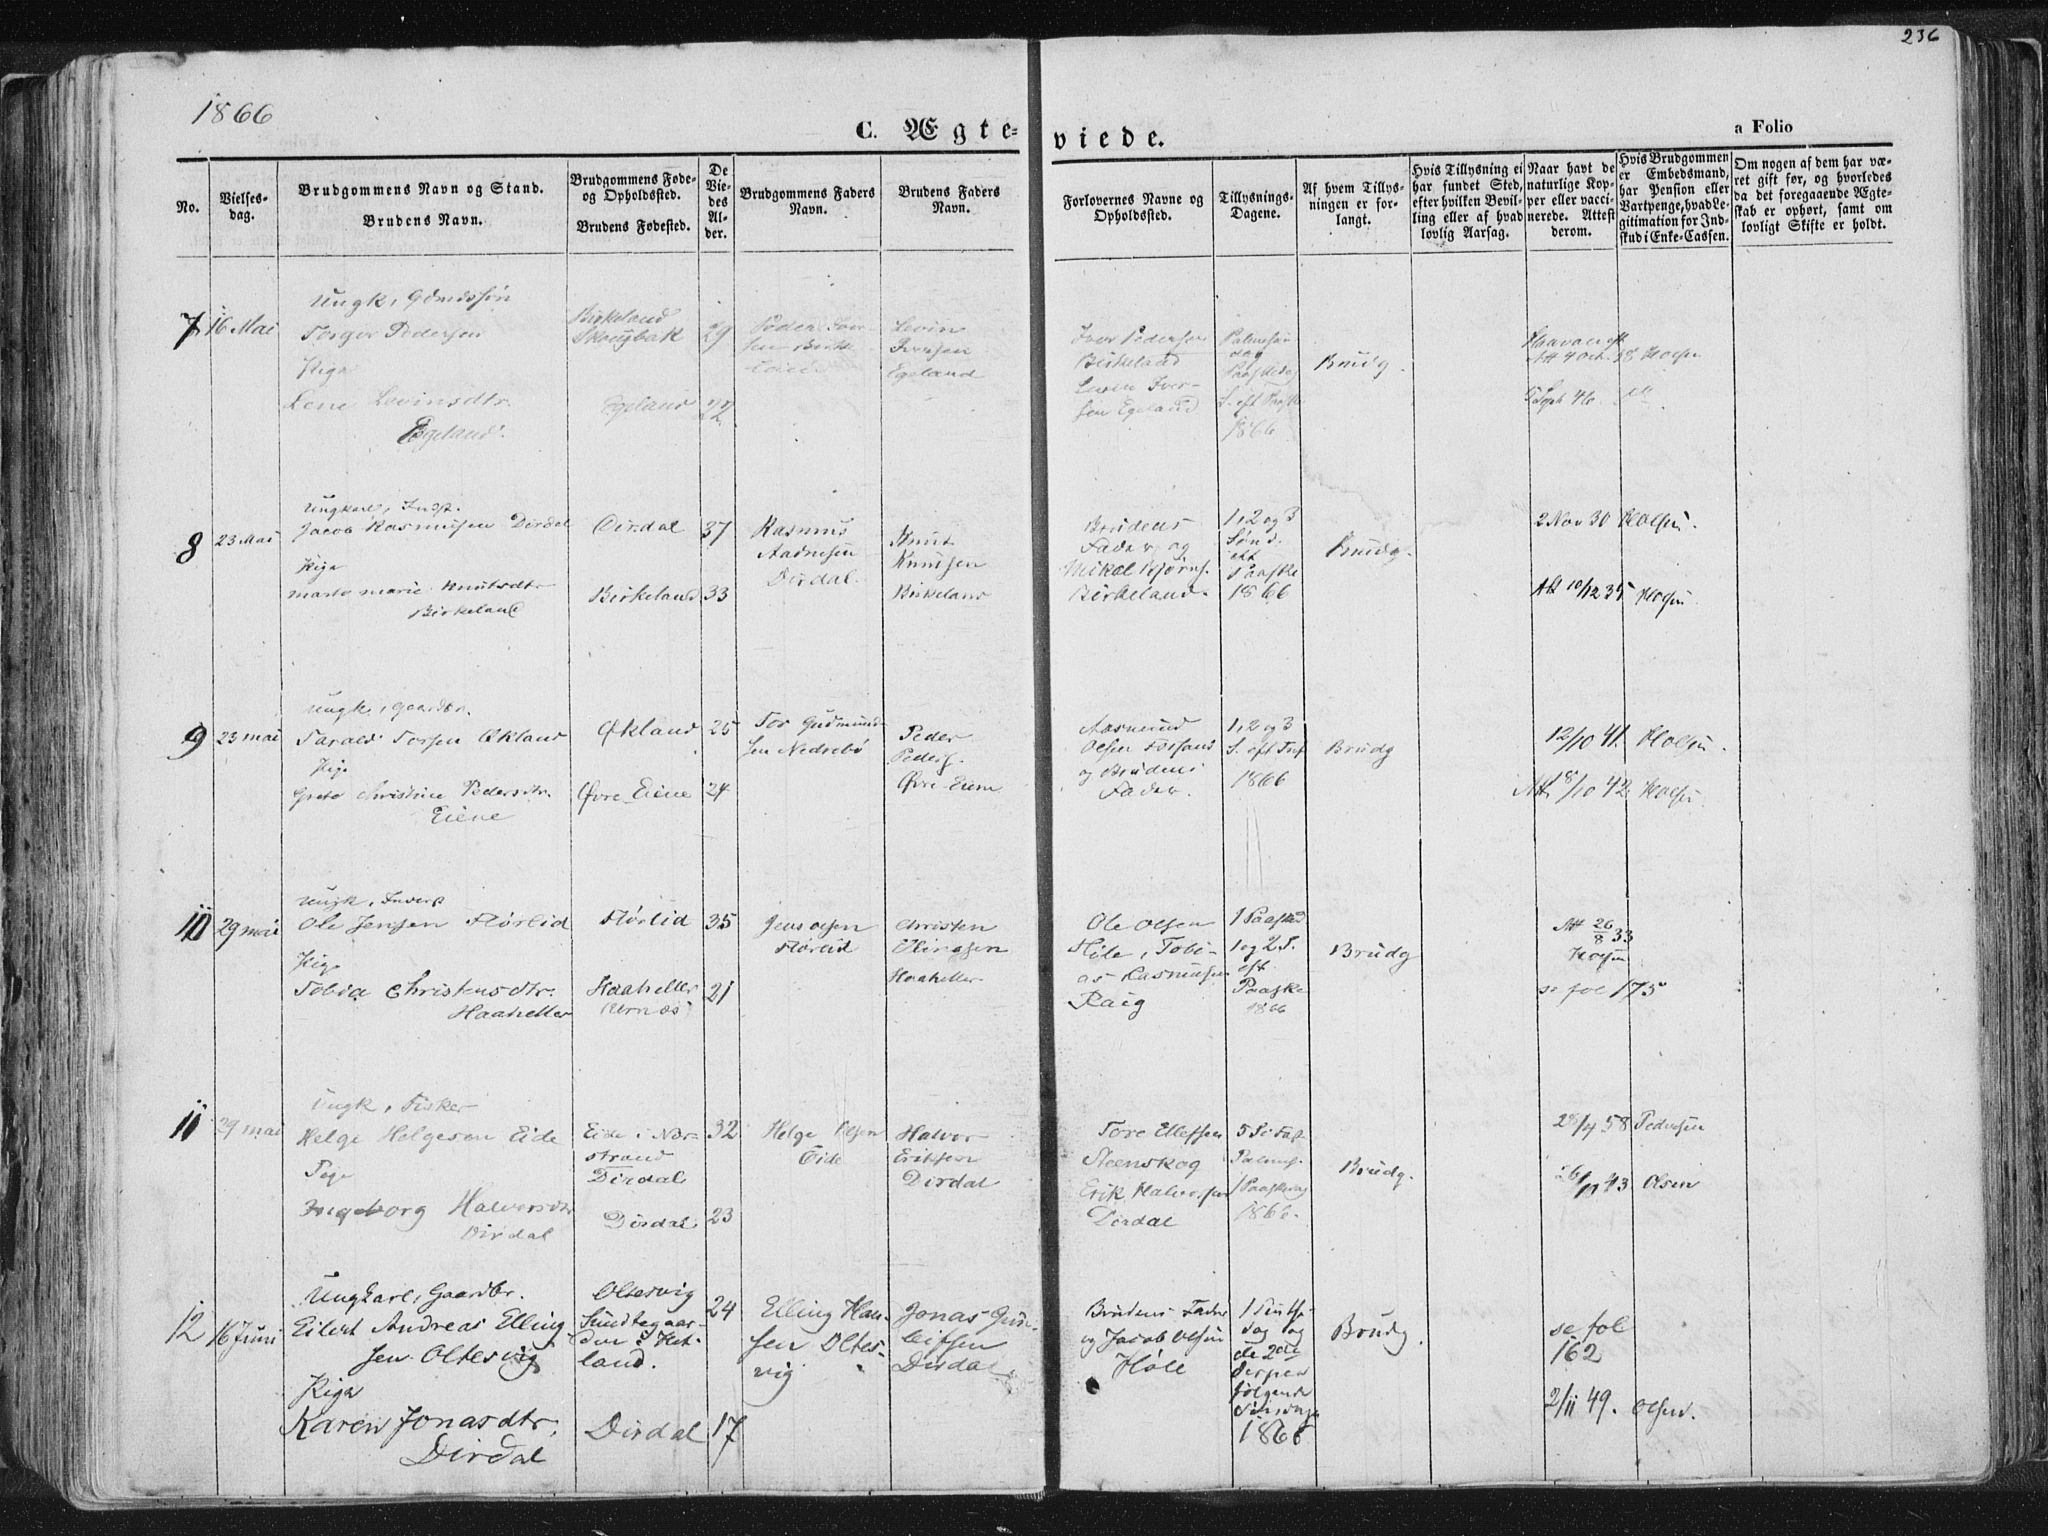 236
1866
C. Ægte-
viede.
a Folio
No.
Vielses-
dag.
Brudgommens Navn og Stand.
Brudens Navn.
Brudgommens Føde-
og Opholdssted.
Brudens Fødested.
De
Vie-
des
Al-
der.
Brudgommens Faders
Navn.
Brudens Faders
Navn.
Forlovernes Navne og
Opholdssted.
Tillysnings-
Dagene.
Af hvem Tillys-
ningen er for-
langt.
Hvis Tillysning ei
har fundet Sted,
efter hvilken Bevil-
ling eller af hvad
lovlig Aarsag.
Naar havt de
naturlige Kop-
per eller vacci-
nerede. Attest
derom.
Hvis Brudgommen
er Embedsmand,
har Pension eller
Vartpenge, hvad Le-
gitimation for Ind-
skud i Enke-Cassen.
Om nogen af dem har væ-
ret gift før, og hvorledes
da det foregaaende Ægte-
skab er ophørt, samt om
lovligt Skifte er holdt.
7 16 Mai
Ungk, Gdmdssøn
Torger Pedersen
Pige
Lene Levinsdtr.
Egeland.
Birkeland
Skougbak
Egeland
29
22
Peder Iver-
sen Birke-
land
Levin
Iversen
Egeland
Iver Pedersen
Birkeland
Levin Iver-
sen Egeland
Palmesøn
dag
Paaskedag
S. eft Paaske
1866
Brudg.
8 23 Mai
Ungkarl, Indst.
Jacob Rasmusen Dirdal
Pige
Marte Marie Knutsdtr
Birkeland
Dirdal
Birkeland
37
33
Rasmus
Aadnesen
Dirdal.
Knut
Knutsen
Birkeland
Brudens
Fader og
Mikal Bjørns.
Birkeland.
1, 2 og 3
Sønd.
eft
Paaske
1866
Brudg.
2 Nov 30 Holsen.
Att 10/12 35 Holsen.
9 23 mai
Ungk, Gaardbr.
Tarald Torsen Økland
Pige
Grete Christine Pedersdtr.
Eiene
Økland
Øvre Eiene
25
24
Tor Gudmund-
sen Nedrebø
Peder
Peders.
Øvre Eiene
Aasmund
Olsen
og Brudens
Fader.
1, 2 og 3
S. eft
1866
Brudg
12/10 41. Holsen.
Att 8/10 42 Holsen
10 29 mai
Ungk,
Ole Jensen Flørlid
Pige
Tobia Christensdtr.
Haaheller
Flørlid
Haaheller
35
21
Jens Olsen
Flørlid
Christen
Haaheller
Ole Olsen
Høle, Tobi-
as Rasmusen
Raig
1 Paasked
1 og 2 S.
eft.
Paaske
1866
Brudg
Att 26/8 33
Holsen
se fol 175
11 29 mai
Ungk, Fisker
Helge Helgesen Eide
Pige
Ingeborg Halvorsdtr
Dirdal
Eide i Nær-
strand
Dirdal
Dirdal
32
23
Helge Olsen
Eide
Halvor
Eriksen
Dirdal
Tore Ellefsen
Steenskog
Erik Halvorsen
Dirdal
5 S. i Fast
Palmes.
1 Paaskedag
1866.
Brudg.
28/4 58 Pedersen
26/11 43 Olsen
12 16 Juni
Ungkarl, Gaardbr.
Eilert Andreas Elling-
sen Oltesvig
Pige
Karen Jonasdtr.
Dirdal
Oltesvig
Sundtegaar-
den i Het-
land.
Dirdal
24
17
Elling Han-
sen Oltes-
vig
Jonas Gun-
leifsen
Dirdal
Brudens Fader
og Jacob Olsen
Høle
1 Pintse-
dag og
de 2de
derpaa
følgende
Søndage
1866
Brudg
se fol
162
2/11 49. Olsen.